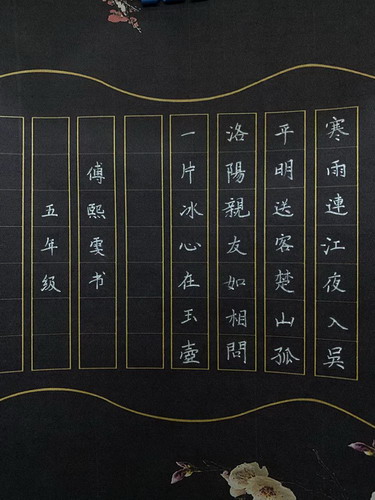 寒雨連江夜入吳
平明送客楚山孤
洛陽親友如相問
一片冰心在玉壺
傅熙雯书
五年级